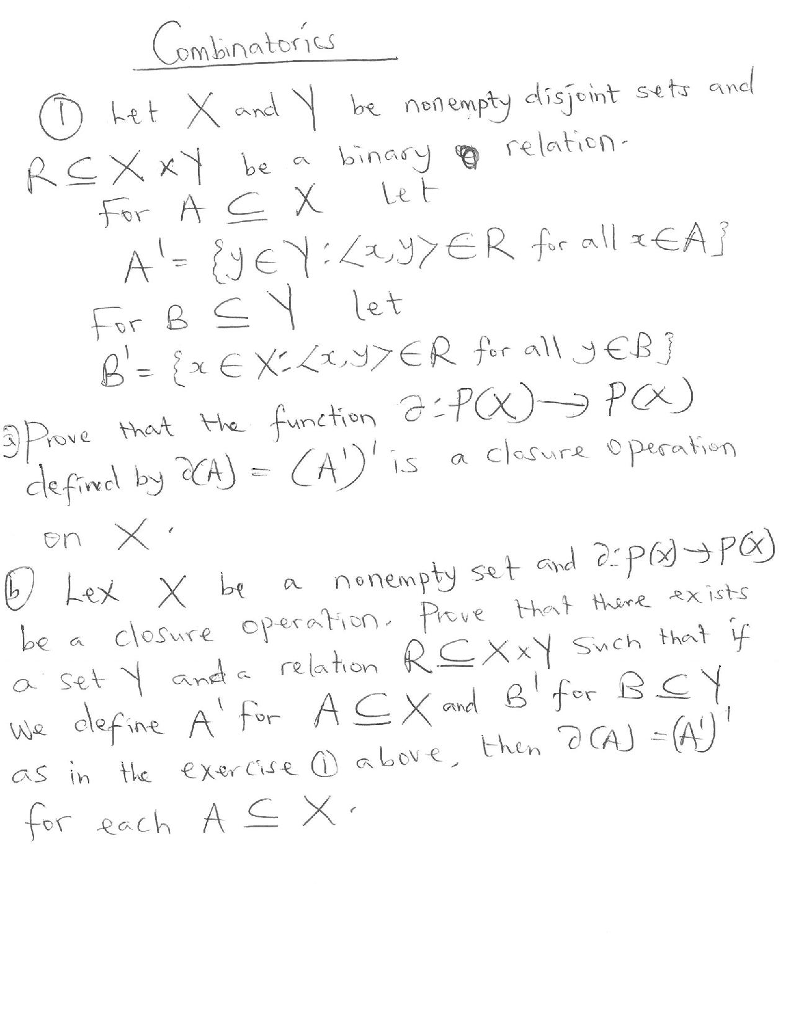 Combinatorics
① Let X and Y be nonempty disjoint sets and
R ⊆ X × Y be a binary relation.
For A ⊆ X Let
A' = {y ∈ Y : <x,y> ∈ R for all x ∈ A}
For B ⊆ Y let
B' = {x ∈ X : <x,y> ∈ R for all y ∈ B}
Prove that the function ∂ : P(X) → P(X)
defined by ∂(A) = (A')' is a closure operation
on X.
ⓑ Lex X be a nonempty set and ∂ : P(X) → P(X)
be a closure operation. Prove that there exists
a set Y and a relation R ⊆ X × Y such that if
we define A' for A ⊆ X and B' for B ⊆ Y
as in the exercise ① above, then ∂(A) = (A')'
for each A ⊆ X.